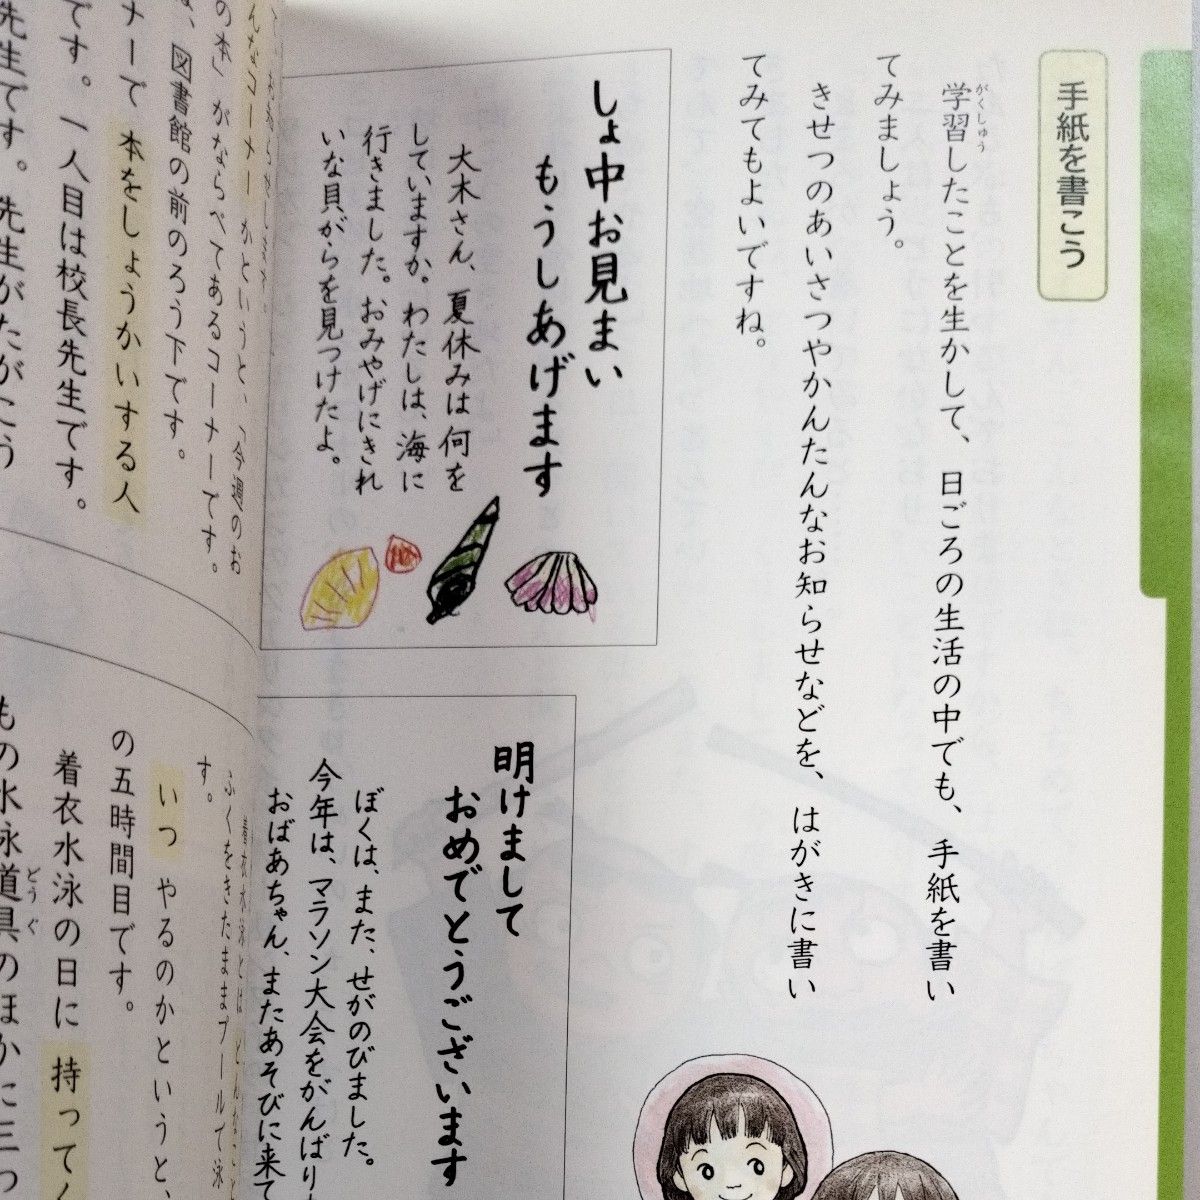 手紙を書こう
がくしゅう
学習したことを生かして、日ごろの生活の中でも、手紙を書い
てみましょう。
きせつのあいさつやかんたんなお知らせなどを、はがきに書い
てみてもよいですね。
しょ中お見まい
もうしあげます
大木さん、夏休みは何を
していますか。わたしは、海に
行きました。おみやげにきれ
いな貝がらを見つけたよ。
明けまして
おめでとうございます
ぼくは、また、せがのびました。
今年は、マラソン大会をがんばり
おばあちゃん、またあそびに来て
んなコーナーかというと、「今週のお
の本」がならべてあるコーナーです。
、図書館の前のろう下です。
ナーで本をしょうかいする人
です。一人目は校長先生です。
先生です。先生がたがこう
着衣水泳とは
ふくをきたままプールで泳
す。
いつやるのかというと、
の五時間目です。
着衣水泳の日に持ってく
どうぐ
もの水泳道具のほかに三つ